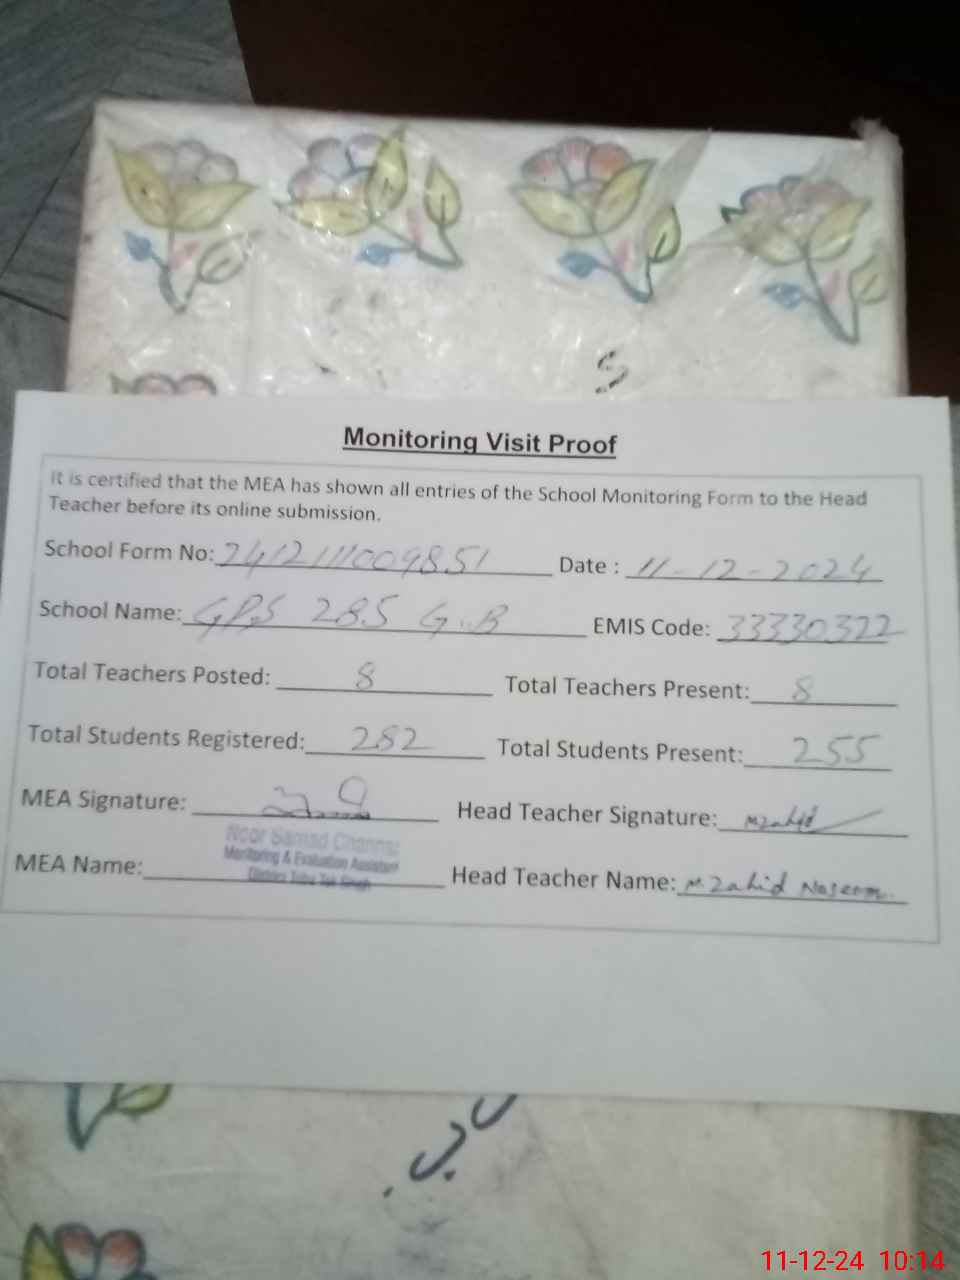 Monitoring Visit Proof
It is certified that the MEA has shown all entries of the School Monitoring Form to the Head
Teacher before its online submission.
School Form No: 2412111009851 Date : 11-12-2024
School Name: GPS 285 G.B EMIS Code: 33330322
Total Teachers Posted: 8 Total Teachers Present: 8
Total Students Registered: 282 Total Students Present: 255
MEA Signature: Head Teacher Signature: Mzahid
Noor Samad
Monitoring & Evaluation Assistant
District Toba Tek Singh
MEA Name: Head Teacher Name: M Zahid Naseem.
11-12-24 10:14